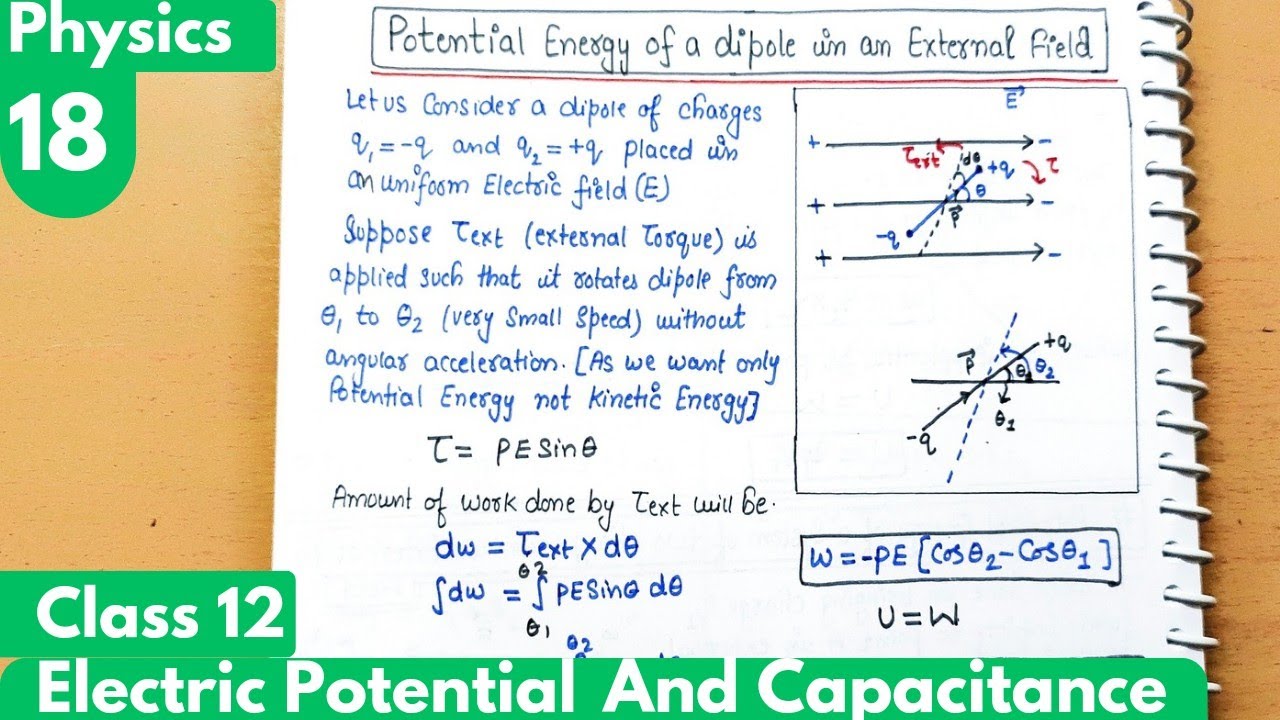 Physics
18
Potential Energy of a dipole in an External Field
Let us Consider a dipole of charges
q₁ = -q and q₂ = +q placed in
an uniform Electric field (E)
Suppose τext (external Torque) is
applied such that it rotates dipole from
θ₁ to θ₂ (very Small Speed) without
angular acceleration. [As we want only
Potential Energy not Kinetic Energy]
τ = PE Sinθ
Amount of work done by τext will be.
dw = τext × dθ
∫dw = ∫ PE Sinθ dθ
θ2
θ1
θ2
E⃗
+ -
τext dθ +q τ
+ θ -
P⃗
-q
+ -
P⃗ +q
θ₂
θ1
-q
W = -PE [Cosθ₂ - Cosθ₁]
U = W
Class 12
Electric Potential And Capacitance